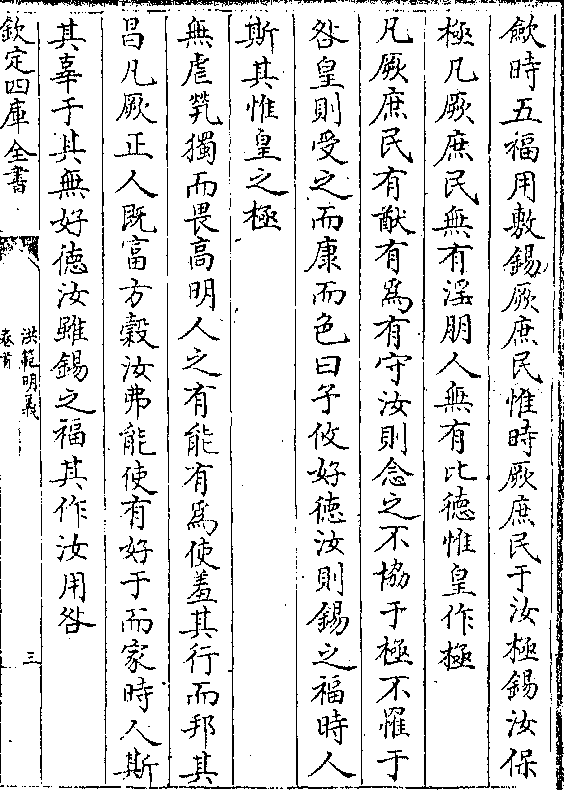 歛時五福用敷錫厥庶民惟時厥庶民于汝極錫汝保
極凡厥庶民無有淫朋人無有比德惟皇作極
凡厥庶民有猷有為有守汝則念之不協于極不罹于
咎皇則受之而康而色曰予攸好德汝則錫之福時人
斯其惟皇之極
無虐煢獨而畏高明人之有能有為使羞其行而邦其
昌凡厥正人既富方穀汝弗能使有好于而家時人斯
其辜于其無好德汝雖錫之福其作汝用咎
欽定四庫全書
洪範明義
卷首
三